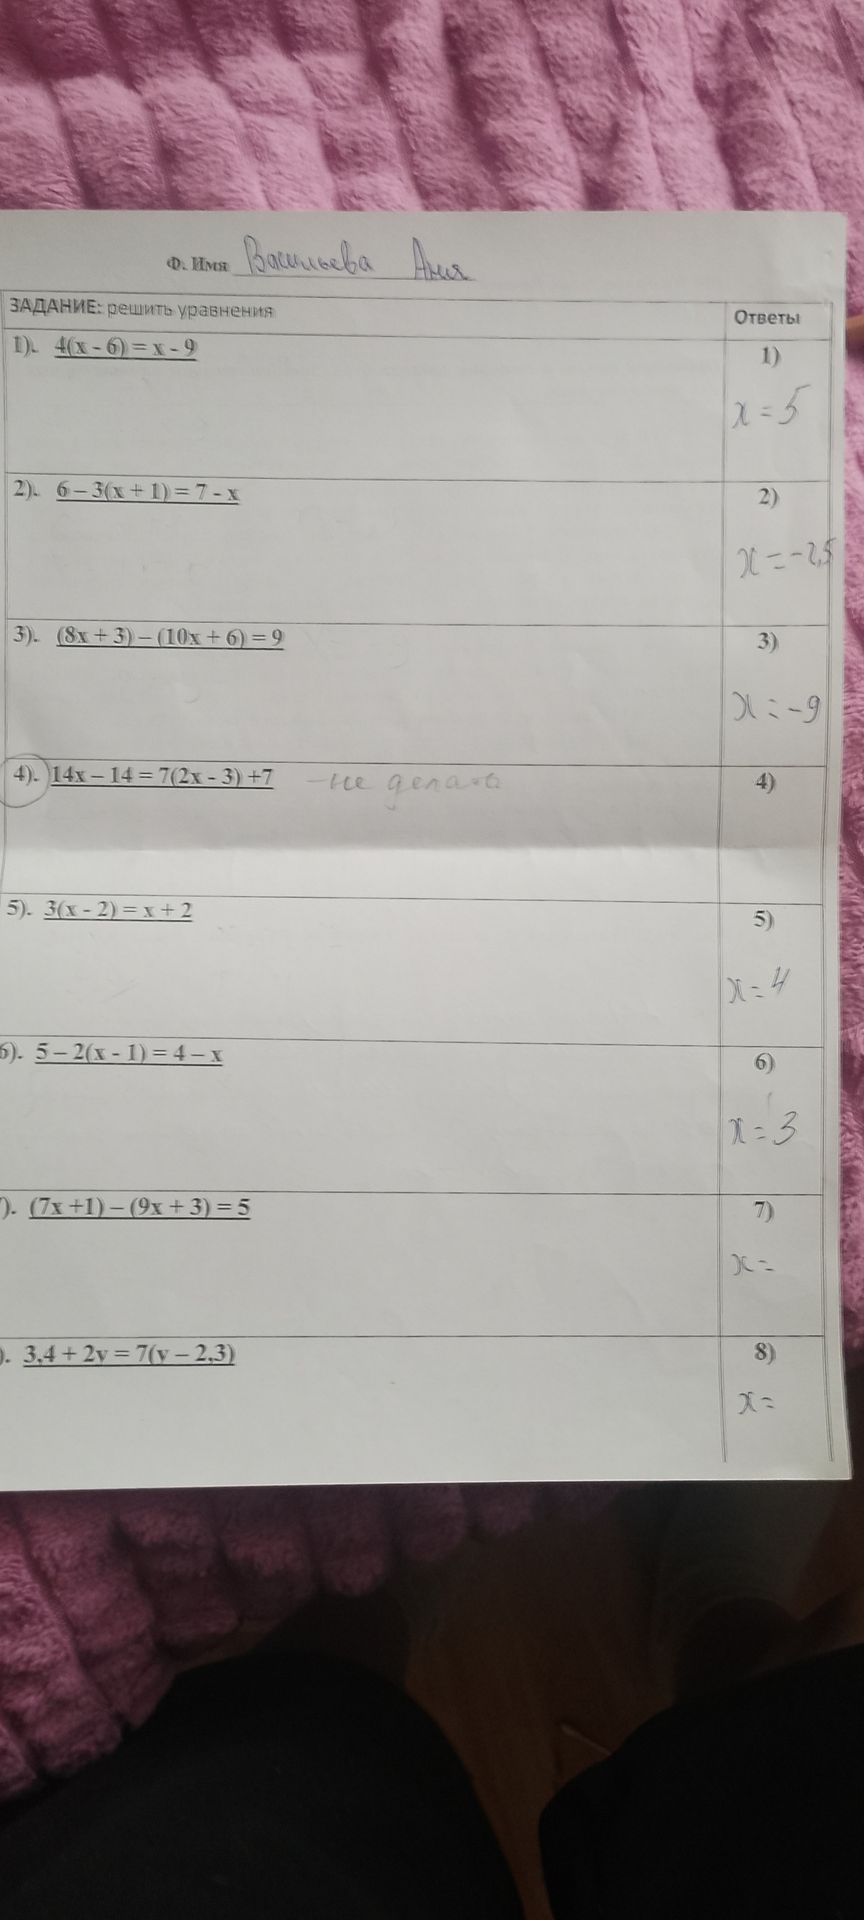 Ф. Имя Васильева Аня
ЗАДАНИЕ: решить уравнения
Ответы
1). 4(x - 6) = x - 9
1)
x = 5
2). 6 – 3(x + 1) = 7 - x
2)
x = -2,5
3). (8x + 3) – (10x + 6) = 9
3)
x = -9
4). 14x – 14 = 7(2x - 3) +7 - не делать
4)
5). 3(x - 2) = x + 2
5)
x = 4
6). 5 – 2(x - 1) = 4 – x
6)
x = 3
). (7x +1) – (9x + 3) = 5
7)
x =
). 3,4 + 2y = 7(y – 2,3)
8)
x =